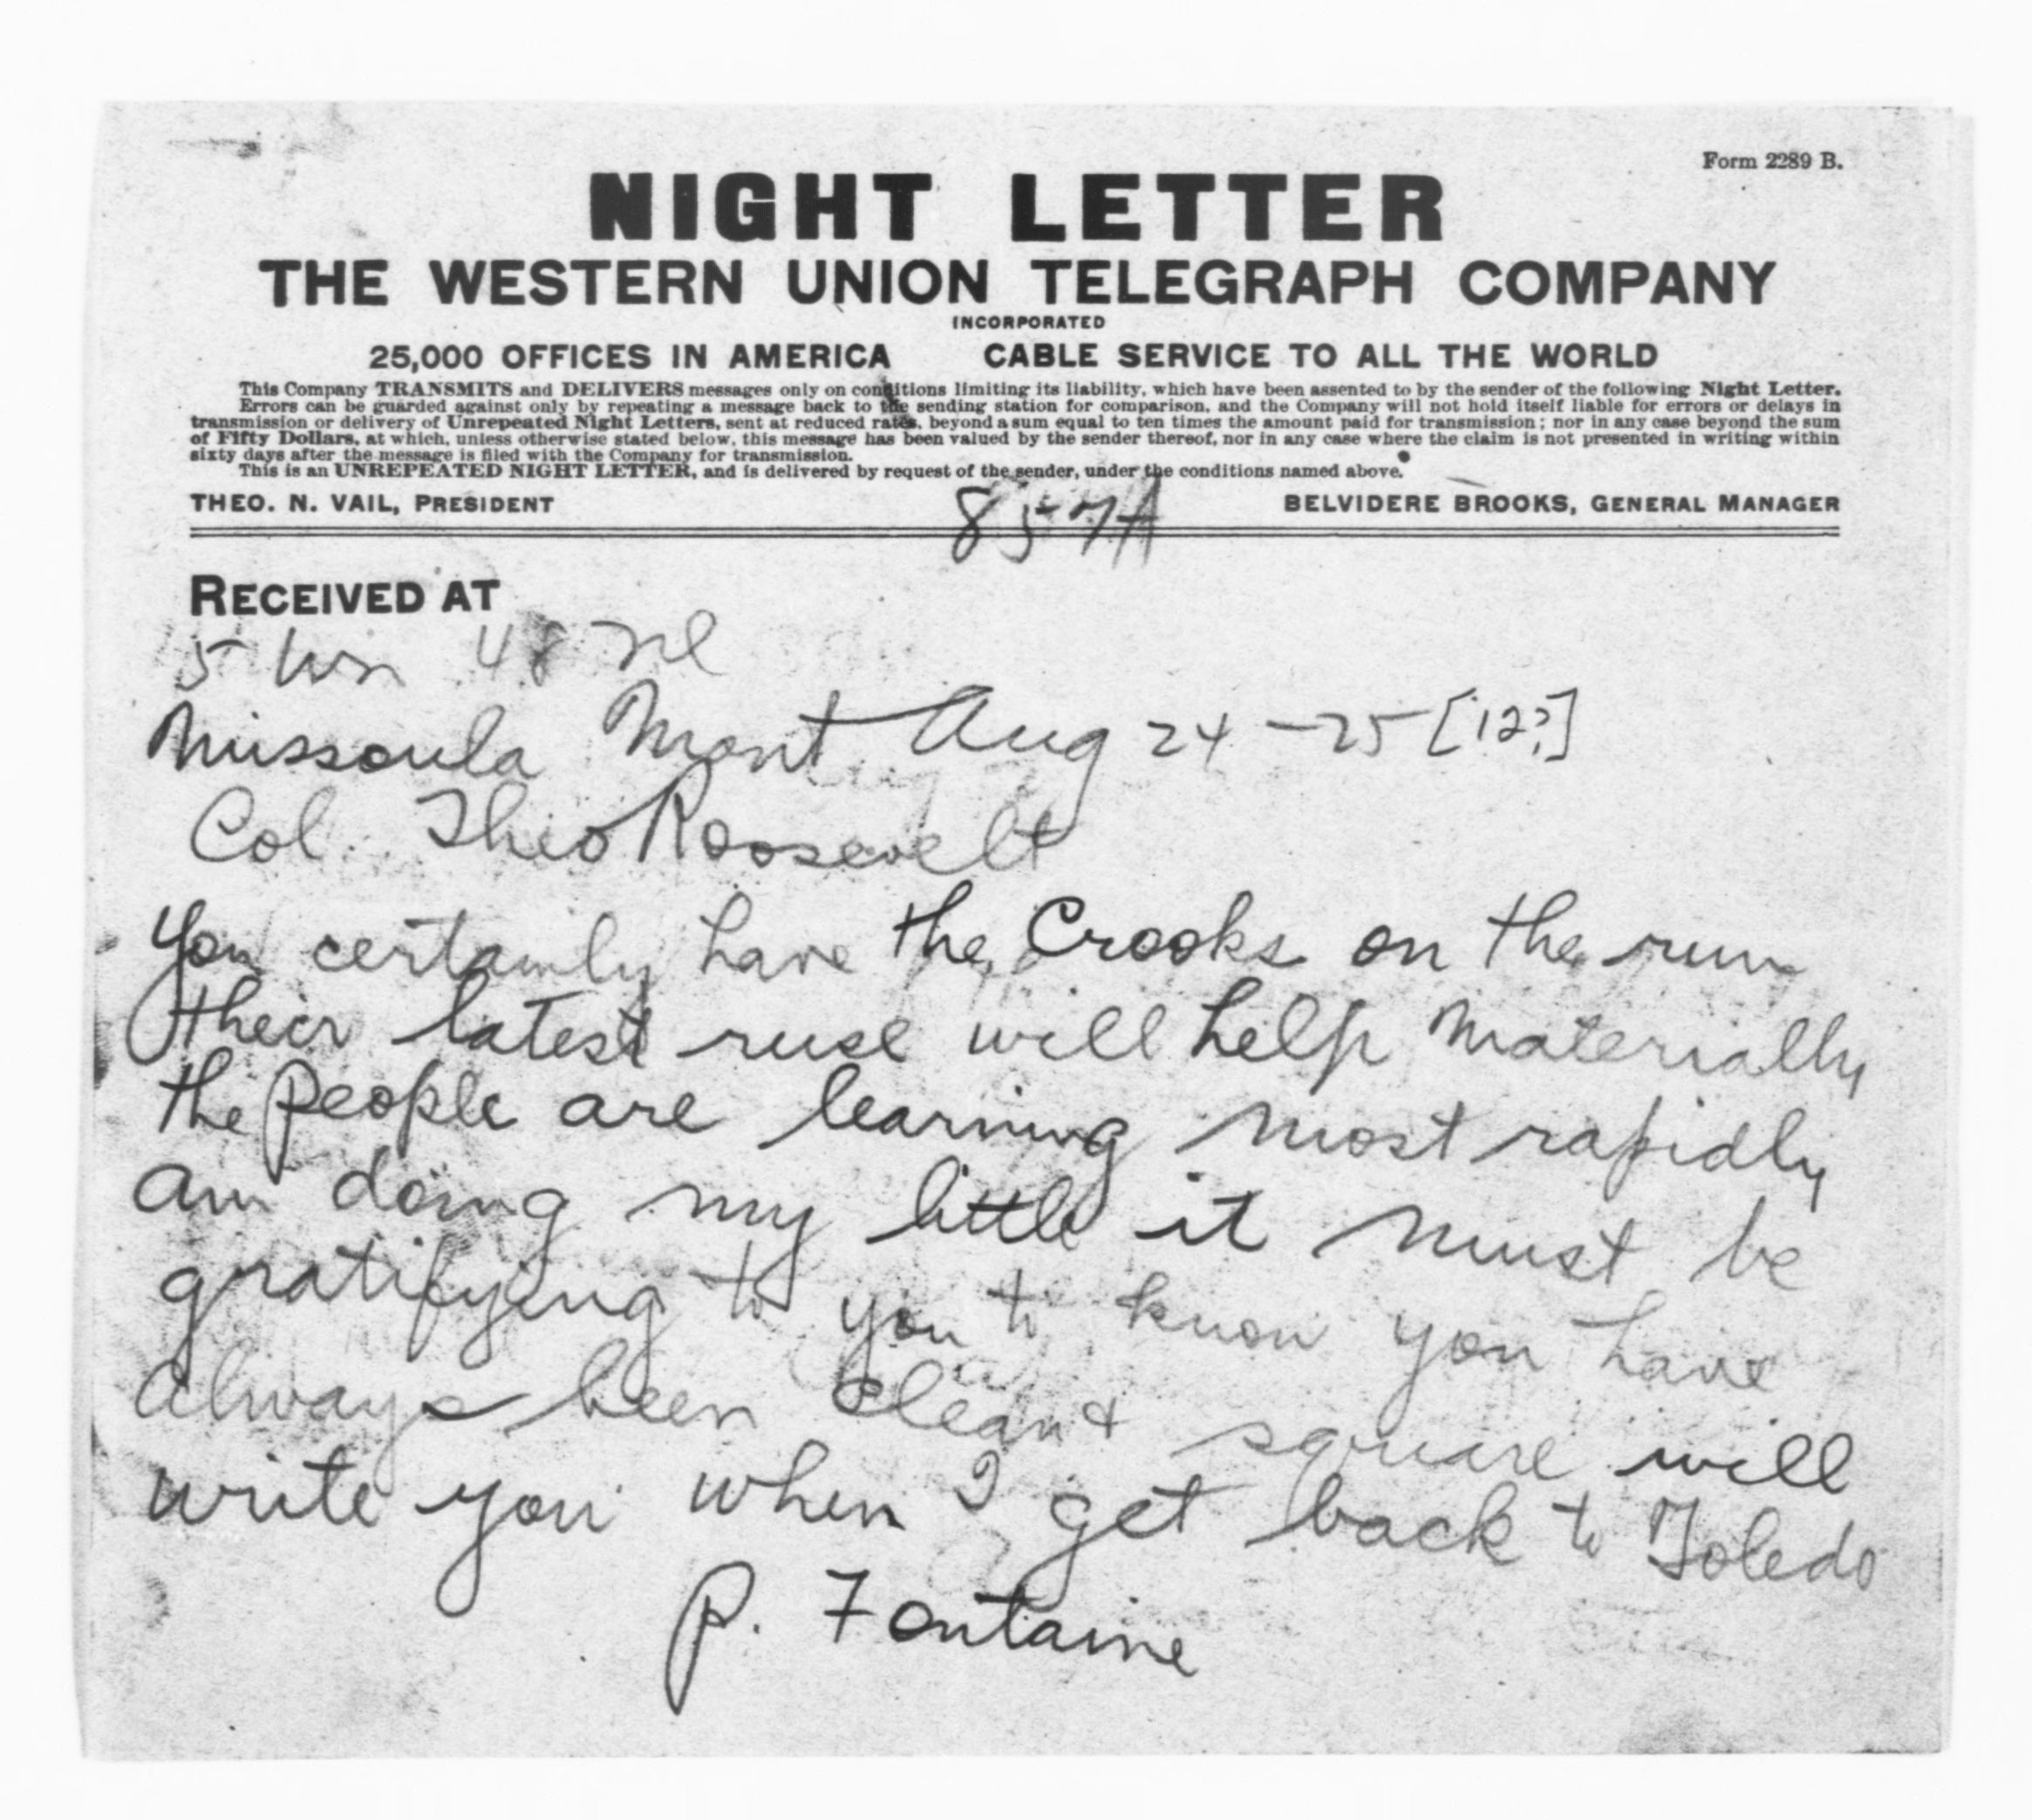 Form 2289 B.
NIGHT LETTER
THE WESTERN UNION TELEGRAPH COMPANY
INCORPORATED
25,000 OFFICES IN AMERICA CABLE SERVICE TO ALL THE WORLD
This Company TRANSMITS and DELIVERS messages only on conditions limiting its liability, which have been assented to by the sender of the following Night Letter.
Errors can be guarded against only by repeating a message back to the sending station for comparison, and the Company will not hold itself liable for errors or delays in
transmission or delivery of Unrepeated Night Letters, sent at reduced rates, beyond a sum equal to ten times the amount paid for transmission; nor in any case beyond the sum
of Fifty Dollars, at which, unless otherwise stated below, this message has been valued by the sender thereof, nor in any case where the claim is not presented in writing within
sixty days after the message is filed with the Company for transmission.
This is an UNREPEATED NIGHT LETTER, and is delivered by request of the sender, under the conditions named above.
THEO. N. VAIL, PRESIDENT BELVIDERE BROOKS, GENERAL MANAGER
857A
RECEIVED AT
5 48 nl
Missoula Mont Aug 24 - 25 [12?]
Col. Theo Roosevelt
You certainly have the Crooks on the run
their latest ruse will help materially
the people are learning most rapidly
am doing my little it must be
gratifying to you to know you have
always been clean & square will
write you when I get back to Toledo
P. Fontaine